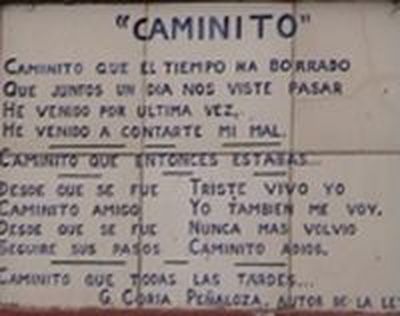 "CAMINITO"
CAMINITO QUE EL TIEMPO HA BORRADO
QUE JUNTOS UN DIA NOS VISTE PASAR
HE VENIDO POR ULTIMA VEZ,
HE VENIDO A CONTARTE MI MAL.
CAMINITO QUE ENTONCES ESTABAS...
DESDE QUE SE FUE TRISTE VIVO YO
CAMINITO AMIGO YO TAMBIEN ME VOY.
DESDE QUE SE FUE NUNCA MAS VOLVIO
SEGUIRE SUS PASOS CAMINITO ADIOS.
CAMINITO QUE TODAS LAS TARDES...
G. CORIA PEÑALOZA, AUTOR DE LA LE